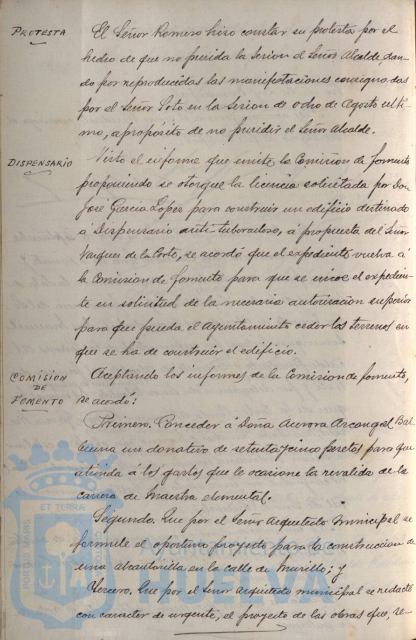 PROTESTA
El Señor Romero hizo constar su protesta por el
hecho de que no presida la Sesion el Señor Alcalde, dan-
do por reproducidas las manifestaciones consignadas
por el Señor Soto en la Sesion de ocho de Agosto ulti-
mo, a proposito de no presidir el Señor Alcalde.
DISPENSARIO
Visto el informe que emite la Comision de fomento
proponiendo se otorgue la licencia solicitada por Don
José Garcia Lopez para construir un edificio destinado
á Dispensario anti-tuberculoso, á propuesta del Señor
Vazques de la Corte, se acordó que el expediente vuelva á
la Comision de fomento para que se inicie el expedien-
te en solicitud de la necesaria autorizacion superior
para que pueda el Ayuntamiento ceder los terrenos en
que se ha de construir el edificio.
COMISION
DE
FOMENTO
Aceptando los informes de la Comision de fomento,
se acordó:
Primero. Conceder á Doña Aurora Arcangel Bal-
buena un donativo de setenta y cinco pesetas para que
atienda á los gastos que le ocasione la revalida de la
carrera de Maestra elemental.
Segundo. Que por el Señor Arquitecto Municipal se
formule el oportuno proyecto para la construccion de
una alcantarilla en la calle de Murillo; y
Tercero. Que por el Señor Arquitecto municipal se redacte
con caracter de urgente, el proyecto de las obras que, se-
PORTUS MARIS
ET TERRAE
HUELVA